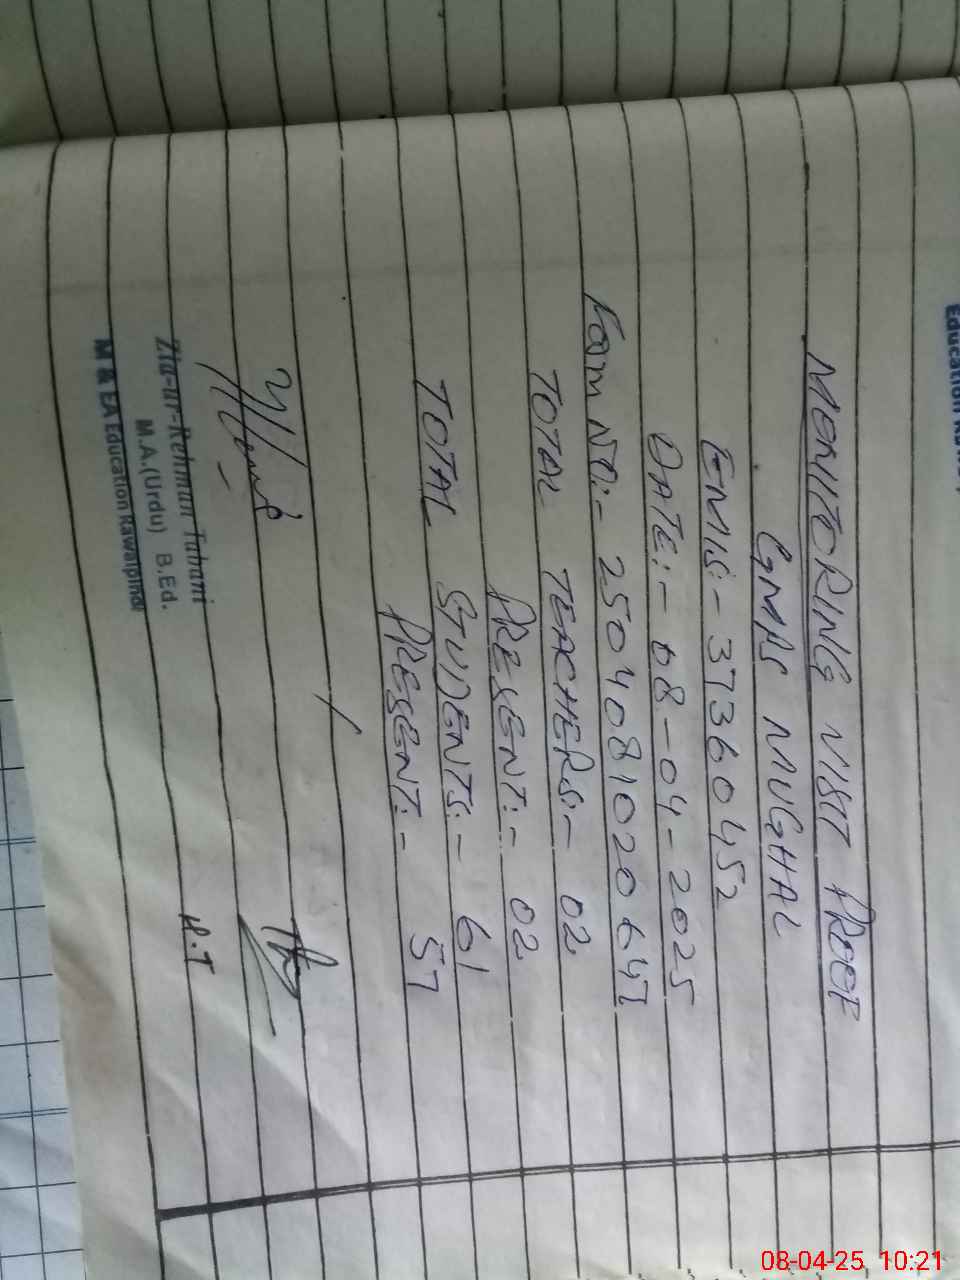 MONITORING VISIT PROOF
GMPS MUGHAL
EMIS:- 37360452
DATE:- 08-04-2025
Form NO:- 2504081020647
TOTAL TEACHERS:- 02
PRESENT:- 02
TOTAL STUDENTS:- 61
PRESENT:- 57
H.T
Zia-ur-Rehman Tabani
M.A.(Urdu) B.Ed.
M & EA Education Rawalpindi
Education
08-04-25 10:21